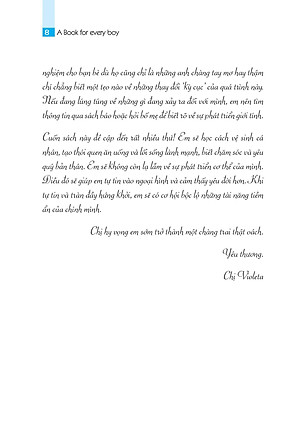 8 A Book for every boy
nghiệm cho bạn bè dù họ cũng chỉ là những anh chàng tay mơ hay thậm
chí chẳng biết một tẹo nào về những thay đổi ‘kỳ cục’ của quá trình này.
Nếu đang lúng túng về những gì đang xảy ra đối với mình, em nên tìm
thông tin qua sách báo hoặc hỏi bố mẹ để biết rõ về sự phát triển giới tính.
Cuốn sách này đề cập đến rất nhiều thứ! Em sẽ học cách vệ sinh cá
nhân, tạo thói quen ăn uống và lối sống lành mạnh, biết chăm sóc và yêu
quý bản thân. Em sẽ không còn lạ lẫm về sự phát triển cơ thể của mình.
Điều đó sẽ giúp em tự tin vào ngoại hình và cảm thấy yêu đời hơn. Khi
tự tin và tràn đầy hứng khởi, em sẽ có cơ hội bộc lộ những tài năng tiềm
ẩn của chính mình.
Chị hy vọng em sớm trở thành một chàng trai thật oách.
Yêu thương,
Chị Violeta